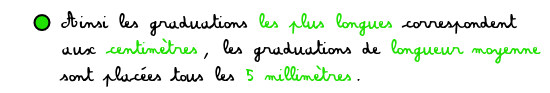 Ainsi les graduations les plus longues correspondent
aux centimètres, les graduations de longueur moyenne
sont placées tous les 5 millimètres.